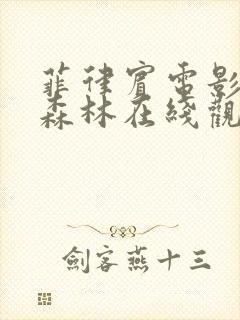 菲律賓電影
森林在綫觀
劍客燕十三